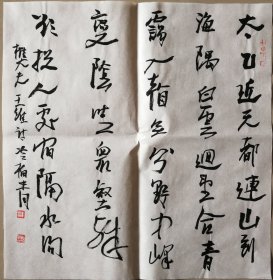 太乙近天都連山到
海隅白雲迴望合青
靄入看無分野中峰
變陰晴衆壑殊
欲投人處宿隔水問
樵夫 王維詩